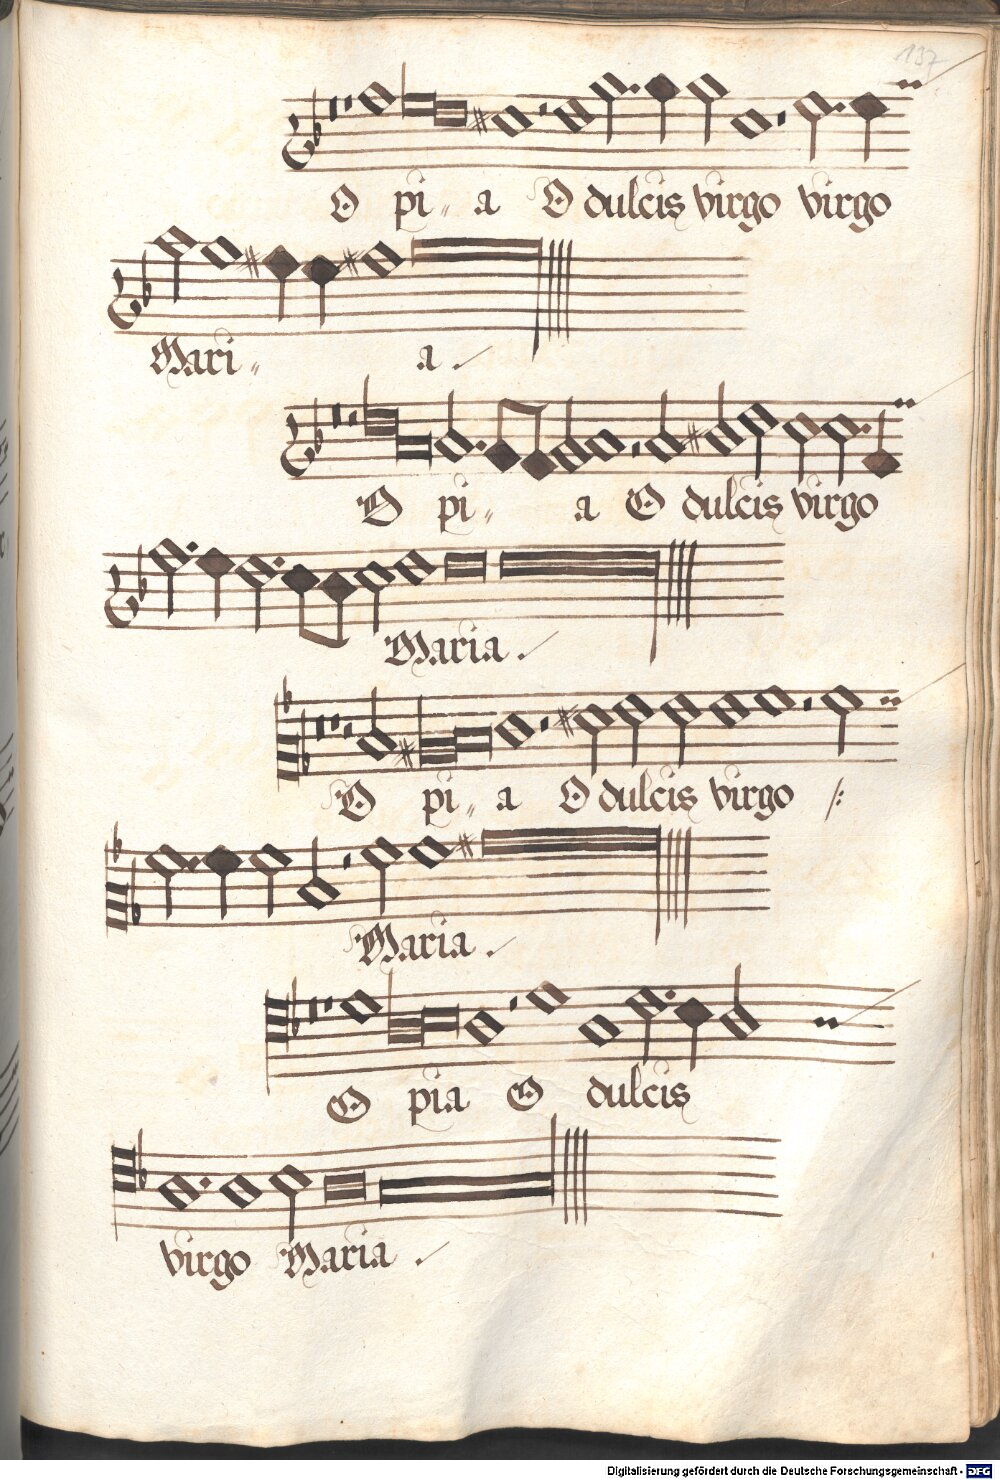 137
O pi〃 a O dulcis virgo virgo
Mari〃 a.
O pi〃 a O dulcis virgo
Maria.
O pi〃 a O dulcis virgo :/:
Maria.
O pia O dulcis
virgo Maria.
Digitalisierung gefördert durch die Deutsche Forschungsgemeinschaft - DFG